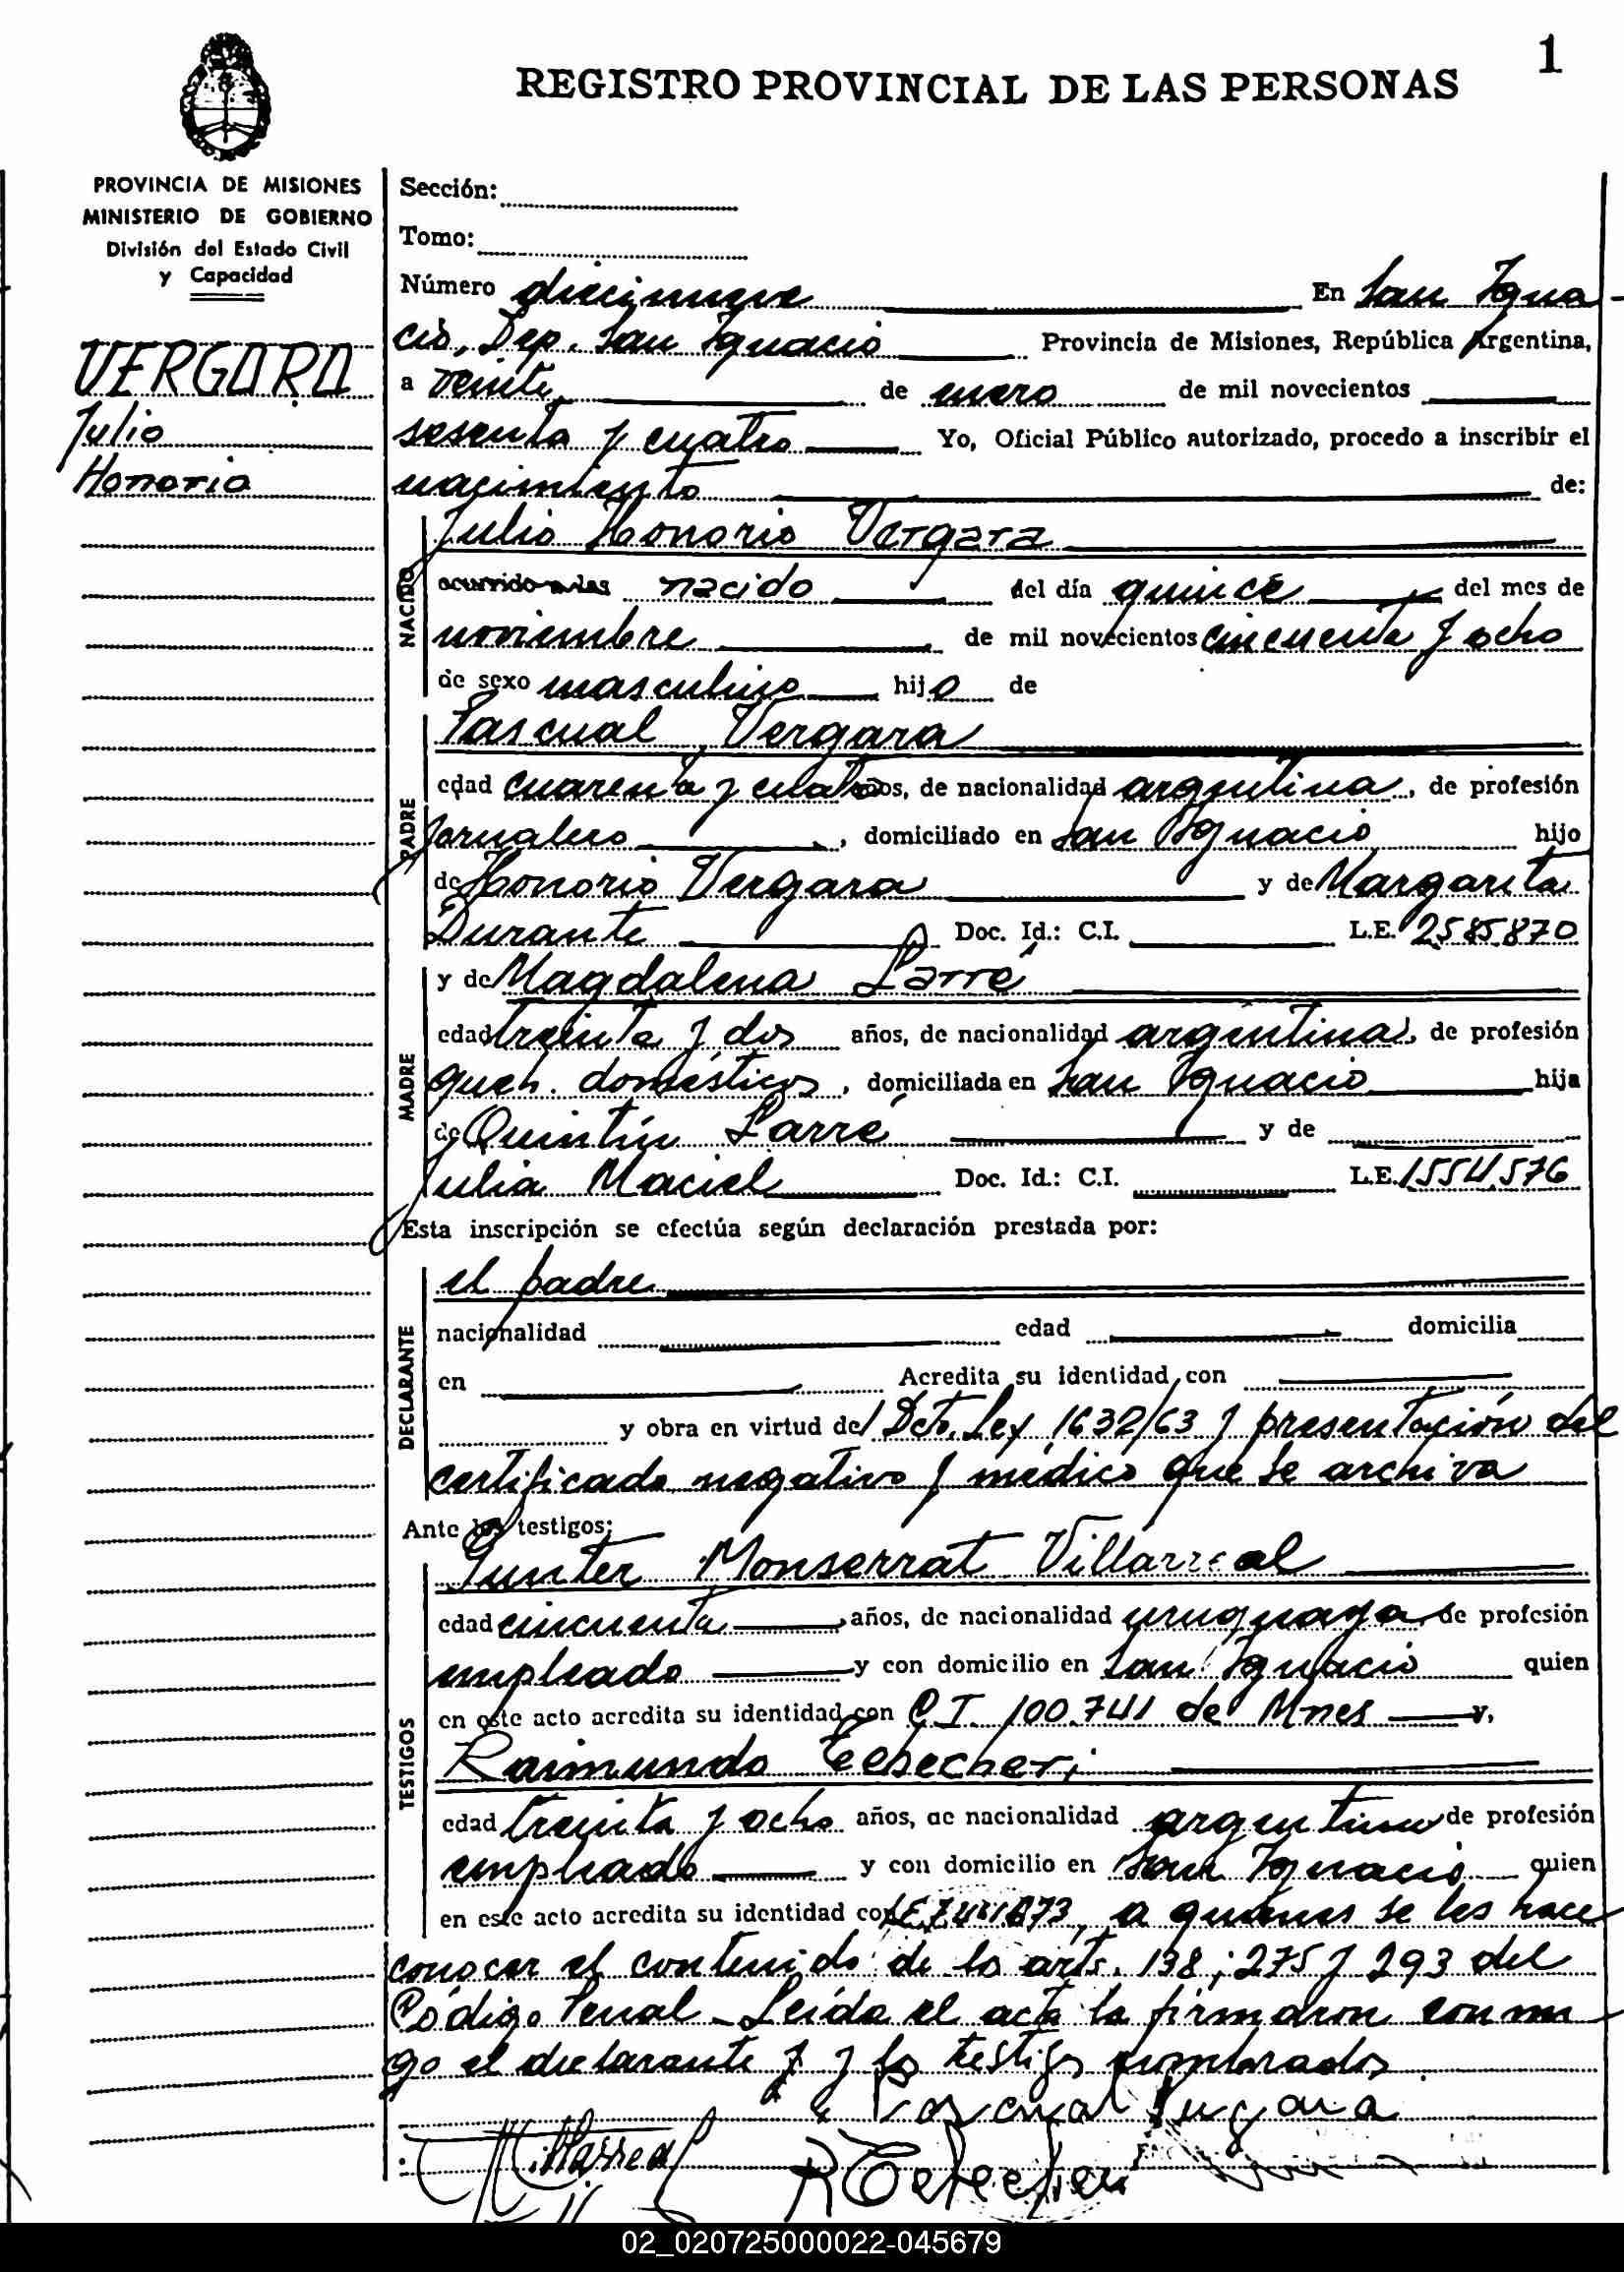 1
REGISTRO PROVINCIAL DE LAS PERSONAS
PROVINCIA DE MISIONES
MINISTERIO DE GOBIERNO
División del Estado Civil
y Capacidad
VERGARA
Julio
Honorio
Sección:
Tomo:
Número diecinueve En San Igna-
cio, Dep. San Ignacio Provincia de Misiones, República Argentina,
a veinte de enero de mil novecientos
sesenta y cuatro Yo, Oficial Público autorizado, procedo a inscribir el
nacimiento de:
NACIDO
Julio Honorio Vergara
ocurrido a las nacido del día quince del mes de
noviembre de mil novecientos cincuenta y ocho
de sexo masculino hijo de
PADRE
Pascual Vergara
edad cuarenta y cuatro años, de nacionalidad argentina, de profesión
Jornalero, domiciliado en San Ignacio hijo
de Honorio Vergara y de Margarita
Durante Doc. Id.: C.I. L.E. 2585870
MADRE
y de Magdalena Larré
edad treinta y dos años, de nacionalidad argentina, de profesión
queh. domésticos, domiciliada en San Ignacio hija
de Quintín Larré y de
Julia Maciel Doc. Id.: C.I. L.E. 1554.576
Esta inscripción se efectúa según declaración prestada por:
DECLARANTE
el padre
nacionalidad edad domicilia
en Acredita su identidad con
y obra en virtud del Dcto. Ley 1632/63 y presentación del
certificado negativo y médico que se archiva
Ante los testigos:
TESTIGOS
Gunter Monserrat Villarreal
edad cincuenta años, de nacionalidad uruguaya, de profesión
empleado y con domicilio en San Ignacio quien
en este acto acredita su identidad con C.I. 100.741 de Mnes y,
Raimundo
edad treinta y ocho años, de nacionalidad argentina de profesión
empleado y con domicilio en San Ignacio quien
en este acto acredita su identidad con LE a quienes se les hace
conocer el contenido de lo arts. 138; 275 y 293 del
Código Penal - Leída el acta la firmaron conmi
go el declarante y y los testigos nombrados
Pascual Vergara
Villarreal
02_020725000022-045679